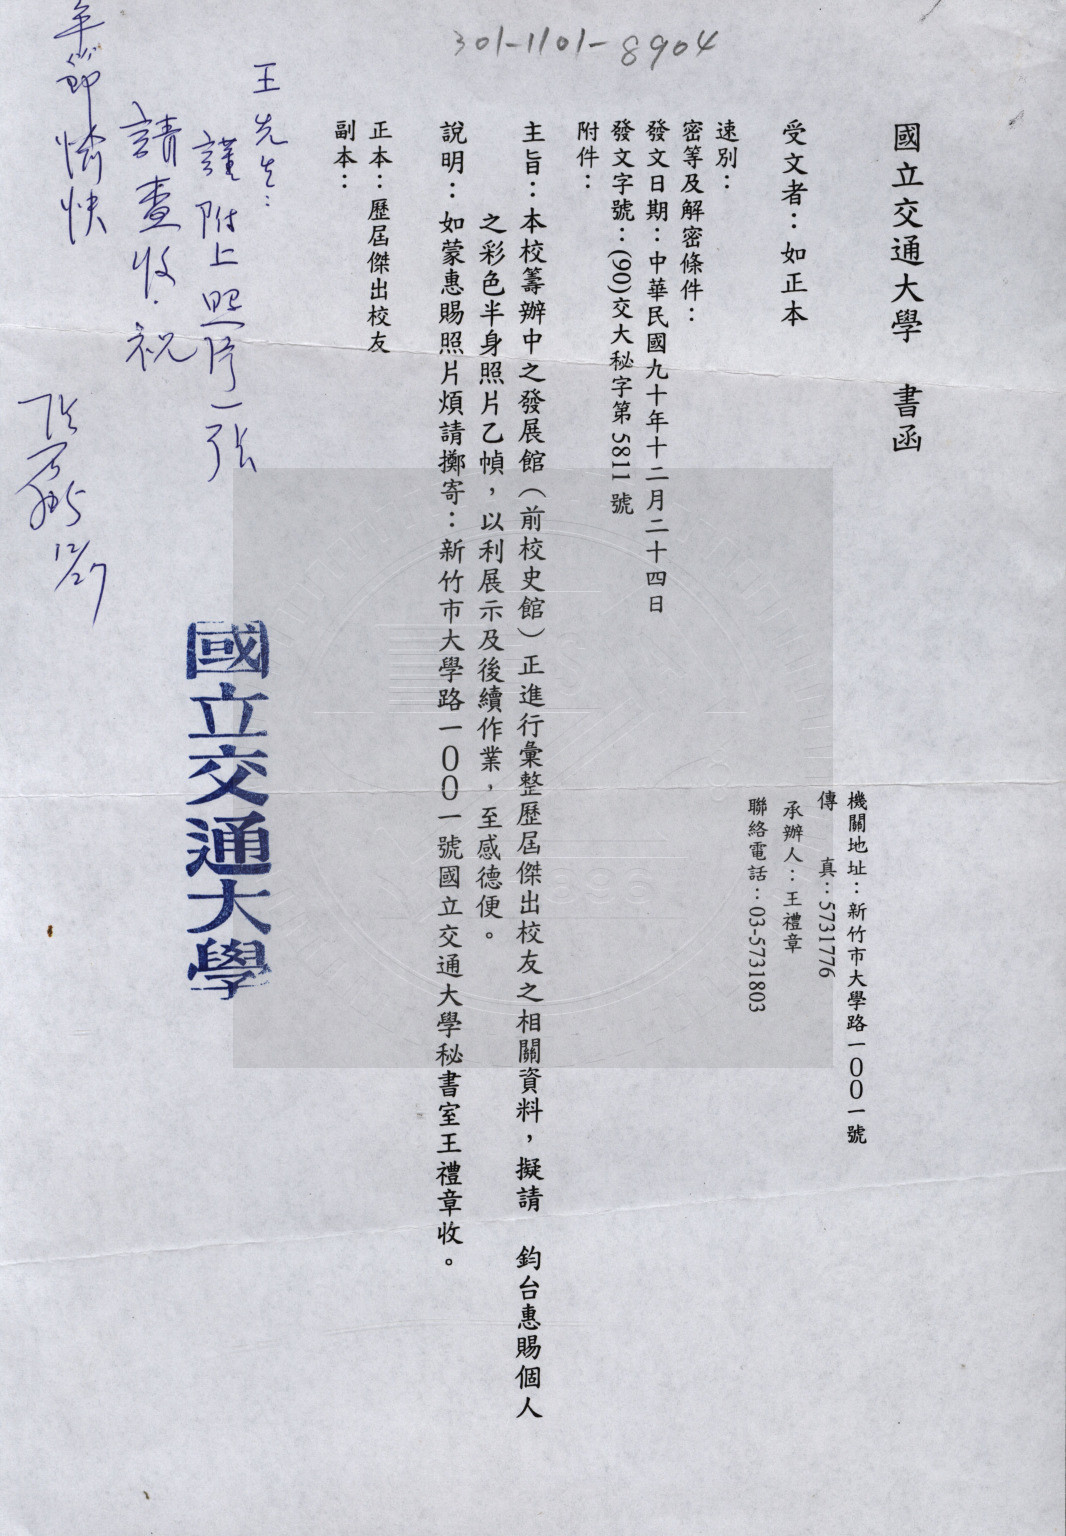 301-1101-8904
國立交通大學 書函
機關地址：新竹市大學路一００一號
傳 真：5731776
承辦人：王禮章
聯絡電話：03-5731803
受文者：如正本
速別：
密等及解密條件：
發文日期：中華民國九十年十二月二十四日
發文字號：(90)交大秘字第 5811 號
附件：
主旨：本校籌辦中之發展館（前校史館）正進行彙整歷屆傑出校友之相關資料，擬請 鈞台惠賜個人
之彩色半身照片乙幀，以利展示及後續作業，至感德便。
說明：如蒙惠賜照片煩請擲寄：新竹市大學路一００一號國立交通大學秘書室王禮章收。
正本：歷屆傑出校友
副本：
王先生：
謹附上照片一張
請查收．祝
年節愉快
12/27
國立交通大學
1896